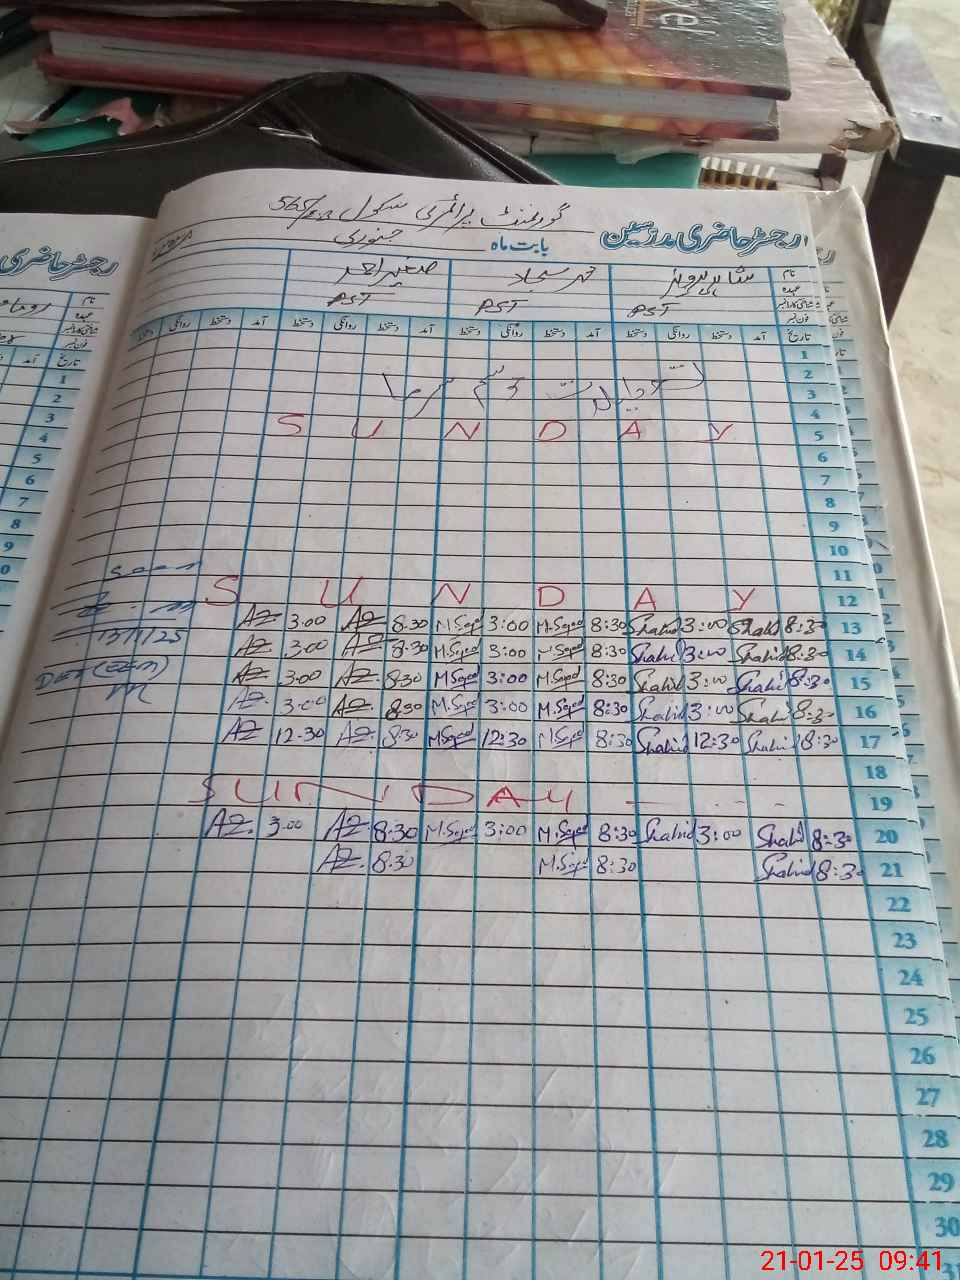 گورنمنٹ پرائمری سکول 565/E.B
رجسٹر حاضری مدرسین بابت ماہ جنوری
نام شاہد پرویز محمد سجاد صغیر احمد
عہدہ PST PST PST
شناختی کارڈ نمبر
فون نمبر
تاریخ آمد دستخط روانگی دستخط آمد دستخط روانگی دستخط آمد دستخط روانگی دستخط
1
2
تعطیلات موسم سرما
3
4
5 SUNDAY
6
7
8
9
10
11
12 SUNDAY
AZ 3.00 AZ 8.30 M.Sajad 3:00 M.Sajad 8:30 Shahid 3:00 Shahid 8:30 13
13/1/25
AZ 3.00 AZ 8.30 M.Sajad 3:00 M.Sajad 8:30 Shahid 3:00 Shahid 8:30 14
AZ 3.00 AZ 8.30 M.Sajad 3:00 M.Sajad 8:30 Shahid 3:00 Shahid 8:30 15
AZ 3.00 AZ 8.30 M.Sajad 3:00 M.Sajad 8:30 Shahid 3:00 Shahid 8:30 16
AZ 12-30 AZ 8:30 M.Sajad 12:30 M.Sajad 8:30 Shahid 12:30 Shahid 8:30 17
18
SUNDAY 19
AZ 3.00 AZ 8:30 M.Sajad 3:00 M.Sajad 8:30 Shahid 3:00 Shahid 8:30 20
AZ 8.30 M.Sajad 8:30 Shahid 8:30 21
22
23
24
25
26
27
28
29
30
31
رجسٹر حاضری
نام
عہدہ
شناختی کارڈ نمبر
فون نمبر
تاریخ آمد
1
2
3
4
5
6
7
8
9
21-01-25 09:41